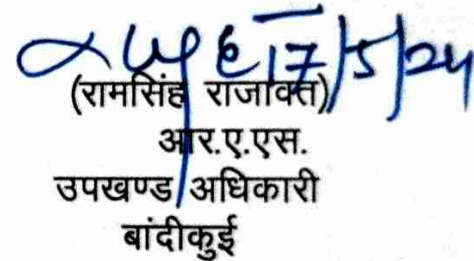 17/5/24
(रामसिंह राजावत)
आर.ए.एस.
उपखण्ड अधिकारी
बांदीकुई